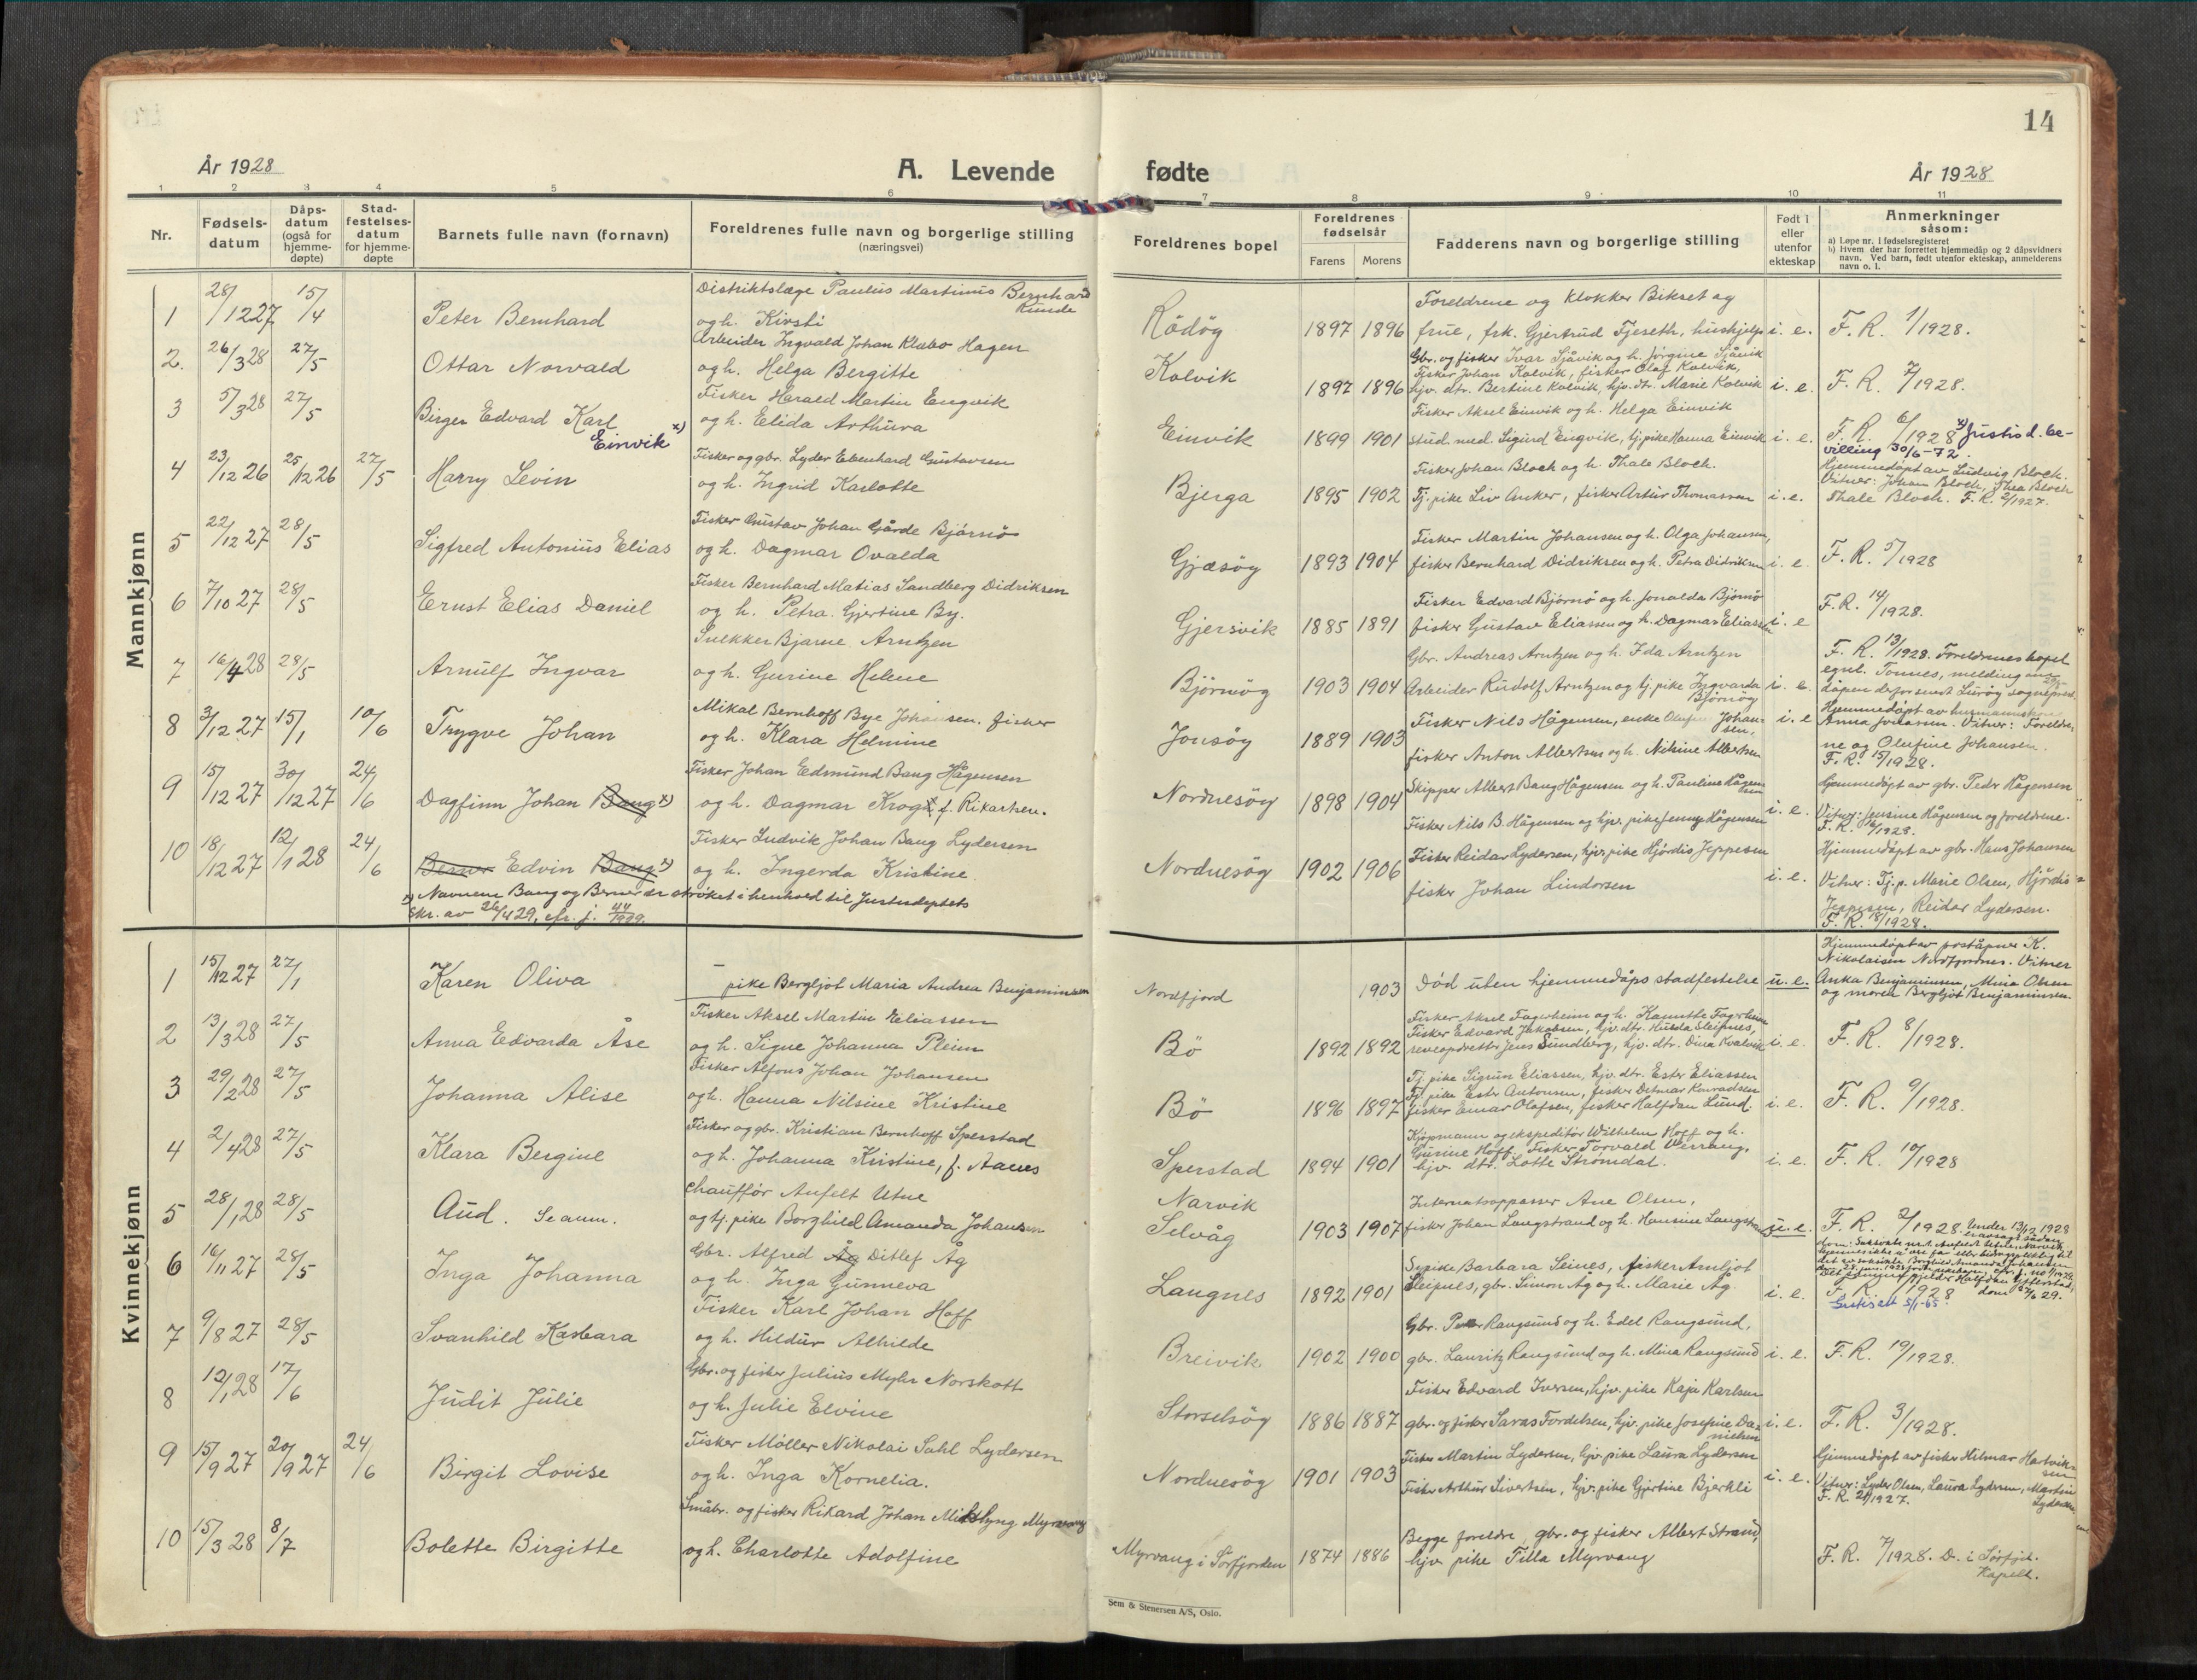 14
År 1928
A. Levende
fødte
År 1928
1 2 3 4 5 6 7 8 9 10 11
Nr.
Fødsels-datum
Dåps-datum (også for hjemme-døpte)
Stad-festelses-datum for hjemme-døpte
Barnets fulle navn (fornavn)
Foreldrenes fulle navn og borgerlige stilling (næringsvei)
Foreldrenes bopel
Foreldrenes fødselsår
Farens Morens
Fadderens navn og borgerlige stilling
Født i eller utenfor ekteskap
Anmerkninger såsom:
a) Løpe nr. i fødselsregisteret
b) Hvem der har forrettet hjemmedåp og 2 dåpsvidners navn. Ved barn, født utenfor ekteskap, anmelderens navn o. l.
Mannkjønn
1 28/12 27 15/4 Peter Bernhard
Distriktslæge Paulus Martinus Bernhard Runde
og h. Kirsti
Rödöy 1897 1896
Foreldrene og klokker Bikset og
frue, frk. Gjertrud Fjeseth, hushjelp i. e. F. R. 1/1928.
2. 26/3 28 27/5 Ottar Norvald
Arbeider Ingvald Johan Klæbo Hagen
og h. Helga Bergitte
Kolvik 1897 1896
Gbr. og fisker Ivar Sjåvik og h. Jörgine Sjåvik
Fisker Johan Kolvik, fisker Olaf Kolvik,
hjv. dtr. Bertine Kolvik, hjv. dtr. Marie Kolvik i. e. F. R. 7/1928.
3 5/3 28 27/5 Birger Edvard Karl
Einvik x)
Fisker Harald Martin Engvik
og h. Elida Arthura
Einvik 1899 1901
Fisker Aksel Einvik og h. Helga Einvik
stud. med. Sigurd Engvik, tj. pike Hanna Einvik i. e. F. R. 6/1928 x) Justisd. be-
villing 30/6-72.
4 23/12 26 25/12 26 27/5 Harry Levin
Fisker og gbr. Lyder Edenhard Gustavsen
og h. Ingrid Karlotte
Bjerga 1895 1902
Fisker Johan Bloch og h. Thale Bloch.
Tj. pike Liv Anker, fisker Artur Thomassen i. e.
Hjemmedöpt av Ludvig Bloch.
Vitner: Johan Bloch, Thea Bloch
Thale Bloch. F. R. 2/1927.
5 22/12 27 28/5 Sigfred Antonius Elias
Fisker Gustav Johan Gårde Bjørnö
og h. Dagmar Ovalda
Gjæsöy 1893 1904
Fisker Martin Johansen og h. Olga Johansen,
fisker Bernhard Didriksen og h. Petra Didriksen i. e. F. R. 5/1928
6 7/10 27 28/5 Ernst Elias Daniel
Fisker Bernhard Matias Sandberg Didriksen
og h. Petra Gjertine By.
Gjersvik 1885 1891
Fisker Edvard Bjørnö og h. Jonalda Bjørnö
fisker Gustav Eliassen og h. Dagmar Eliassen i. e F. R. 14/1928.
7 16/4 28 28/5 Arnulf Ingvar
Snekker Bjarne Arntzen
og h. Gurine Helene
Björnöy 1903 1904
Gbr. Andreas Arntzen og h. Ida Arntzen
Arbeider Rudolf Arntzen og tj. pike Ingvarda Björnöy i. e.
F. R. 13/1928. Foreldrenes bopel
egnl. Tonnes, melding om
dåpen derfor sendt Luröy sogneprest.
8 3/12 27 15/1 10/6 Trygve Johan
Mikal Bernhoff Bye Johansen. fisker
og h. Klara Helmine
Jonsöy 1889 1903
Fisker Nils Hågensen, enke Olufine Johansen,
fisker Anton Albertsen og h. Nilsine Albertsen i. e
Hjemmedöpt av husmannskone
Anna Jonassen. Vitner: Foreldre-
ne og Olufine Johansen.
F. R. 15/1928.
9 15/12 27 30/12 27 24/6 Dagfinn Johan Bang x)
Fisker Johan Edmund Bang Hågensen
og h. Dagmar Krogh f. Rikartsen.
Nordnesöy 1898 1904
Skipper Albert Bang Hågensen og h. Pauline Hågensen
Fisker Nils B. Hågensen og hjv. pike Jenny Hågensen i. e.
Hjemmedöpt av gbr. Peder Hågensen
Vitner: Jensine Hågensen og foreldrene.
F. R. 16/1928.
10 18/12 27 12/1 28 24/6 Berner Edvin Bang x)
Fisker Ludvik Johan Bang Lydersen
og h. Ingerda Kristine
Nordnesöy 1902 1906
Fisker Reidar Lydersen, hjv. pike Hjördis Jeppesen
fisker Johan Lindorsen i. e.
Hjemmedöpt av gbr. Hans Johansen
Vitner: Tj. p. Marie Olsen, Hjördis
Jeppesen, Reidar Lydersen.
F. R. 18/1928.
x) Navnene Bang og Berner er ströket i henhold til Justisdeptets
skr. av 26/4 29, cfr. j. 44/1929.
Kvinnekjønn
1 15/12 27 27/1 Karen Oliva
pike Bergljot Maria Andrea Benjaminsen
Nordfjord 1903 Död uten hjemmedåps stadfestelse u. e.
Hjemmedöpt av poståpner K.
Nikolaisen Nordfjordnes. Vitner
Anka Benjaminsen, Mina Olsen
og moren Bergljot Benjaminsen.
2 13/3 28 27/5 Anna Edvarda Åse
Fisker Aksel Martin Eliassen
og h. Signe Johanna Pleim
Bö 1892 1892
Fisker Aksel Fagerheim og h. Kanutte Fagerheim
Fisker Edvard Jakobsen, hjv. dtr. Husla Sleipnes,
reveopdretter Jens Sundberg, hjv. dtr. Dina Kvalvik i. e. F. R. 8/1928.
3 29/2 28 27/5 Johanna Alise
Fisker Alfons Johan Johansen
og h. Hanna Nilsine Kristine
Bö 1896 1897
Tj. pike Sigrun Eliassen, hjv. dtr. Ester Eliassen
Tj. pike Ester Antonsen, fisker Detmar Konradsen
fisker Einar Olafsen, fisker Halfdan Lund. i. e. F. R. 9/1928.
4 2/4 28 27/5 Klara Bergine
Fisker og gbr. Kristian Bernhoff Sperstad
og h. Johanna Kristine, f. Aanes
Sperstad 1894 1901
Kjöpmann og ekspeditör Wilhelm Hoff og h.
Gurine Hoff. Fisker Torvald Værrang.
hjv. dtr. Lotte Strömdal. i. e. F. R. 10/1928
5 28/1 28 28/5 Aud. Se anm.
Chaufför Anfelt Utne
og tj. pike Borghild Amanda Johansen
Narvik
Selvåg 1903 1907
Internatoppasser Ane Olsen,
fisker Johan Langstrand og h. Hansine Langstrand u. e. F. R. 2/1928.
6 16/11 27 28/5 Inga Johanna
Gbr. Alfred Åg Ditlef Åg
og h. Inga Gunneva
Langnes 1892 1901
Sypike Barbara Seines, fisker Arnljot
Sleipnes, gbr. Simon Åg og h. Marie Åg. i. e. F. R. 1/1928
7 9/8 27 28/5 Svanhild Karbara
Fisker Karl Johan Hoff
og h. Hildur Alhilde
Breivik 1902 1900
Gbr. Peder Rangsund og h. Edel Rangsund,
gbr. Lauritz Rangsund og h. Mina Rangsund i. e. F. R. 19/1928.
8 12/1 28 17/6 Judit Julie
Gbr. og fisker Julius Myhr Norskott
og h. Julie Elvine
Storselsöy 1886 1887
Fisker Edvard Iversen, hjv. pike Kaja Karlsen
gbr. og fisker Saras Fordelsen, hjv. pike Josefine Danielsen i. e. F. R. 3/1928.
9 15/9 27 20/9 27 24/6 Birgit Lovise
Fisker Möller Nikolai Sahl Lydersen
og h. Inga Kornelia.
Nordnesöy 1901 1903
Fisker Martin Lydersen, hjv. pike Laura Lydersen
Fisker Arthur Sivertsen, hjv. pike Gjertine Bjerkli i. e.
Hjemmedöpt av fisker Hilmar Hartviksen
Vitner: Lyder Olsen, Laura Lydersen, Martin Lydersen
F. R. 21/1927.
10 15/3 28 8/7 Bolette Birgitte
Småbr. og fisker Rikard Johan Myrvang
og h. Charlotte Adolfine
Myrvang i Sörfjorden 1874 1886
Begge foreldre, gbr. og fisker Albert Strand,
hjv. pike Tilla Myrvang
F. R. 7/1928. D. i Sörfjd.
Kapell.
Sem & Stenersen A/S, Oslo.